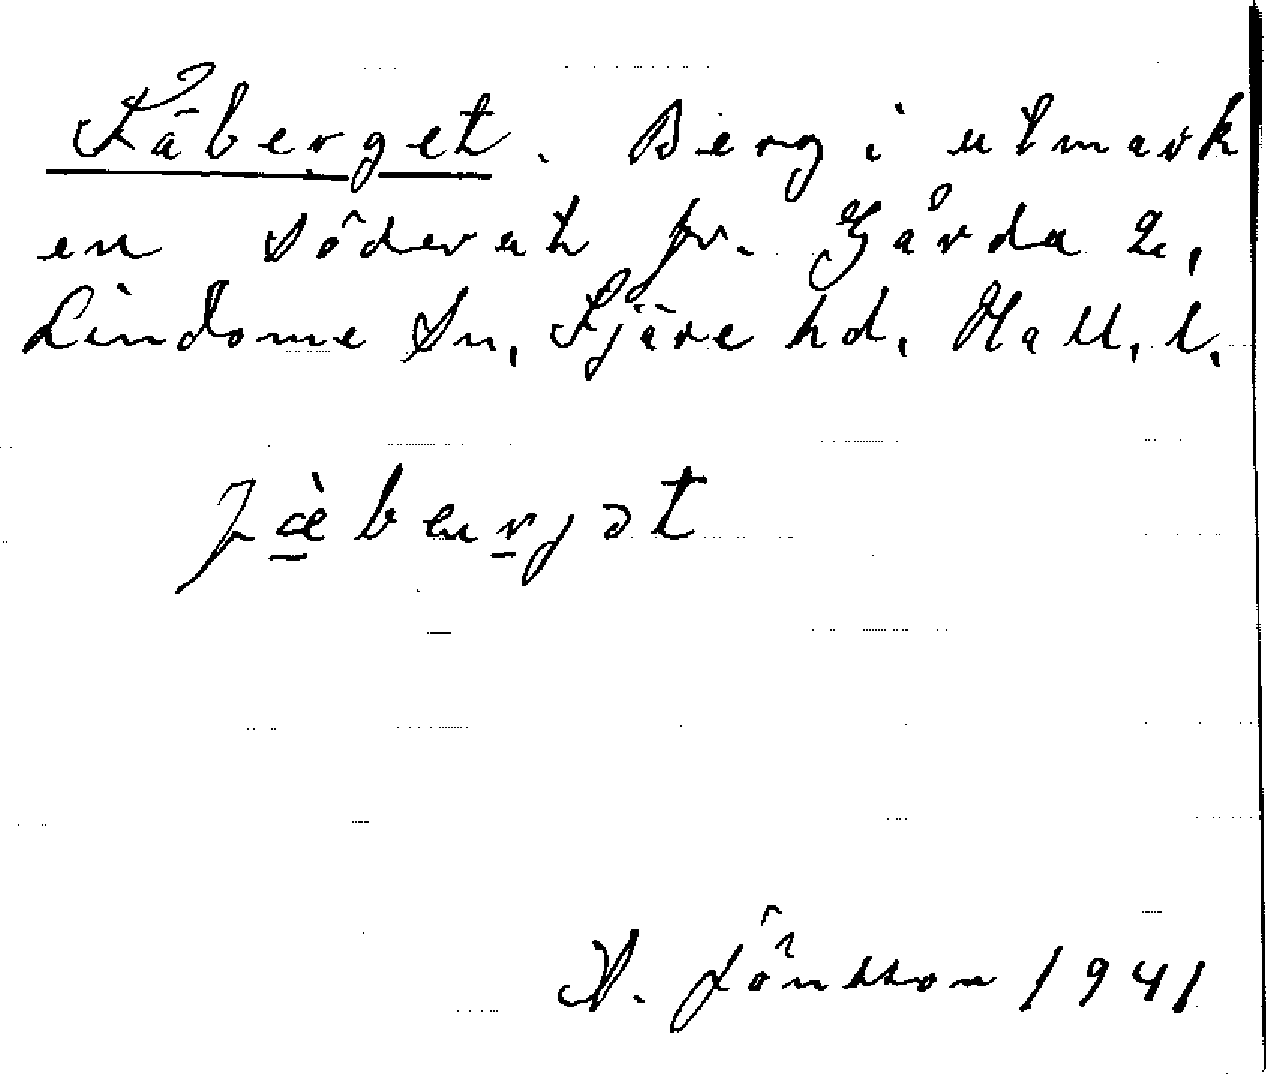 Fäberget. Berg i utmark
en söderut fr. Gårda 2,
Lindome sn, Fjäre hd, Hall. l.
fæ̀bærjət
A. Jönsson 1941